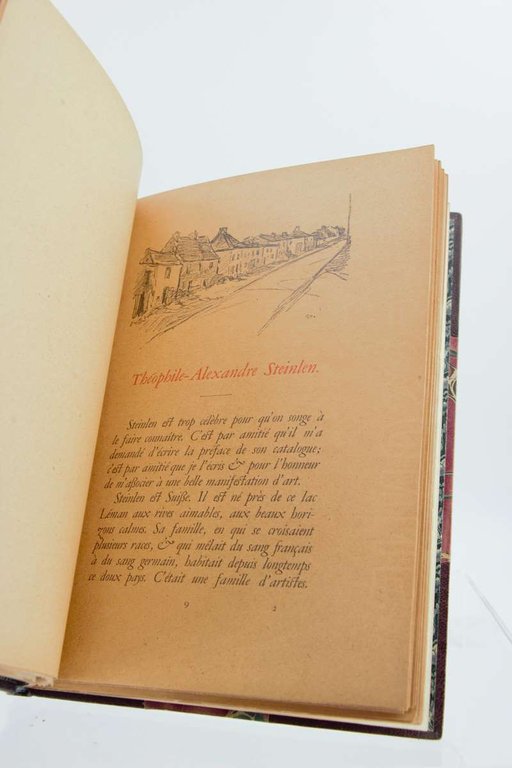 Théophile-Alexandre Steinlen.
Steinlen est trop célèbre pour qu'on songe à
le faire connaitre. C'est par amitié qu'il m'a
demandé d'écrire la préface de son catalogue;
c'est par amitié que je l'écris & pour l'honneur
de m'associer à une belle manifestation d'art.
Steinlen est Suisse. Il est né près de ce lac
Léman aux rives aimables, aux beaux hori-
zons calmes. Sa famille, en qui se croisaient
plusieurs races, & qui mêlait du sang français
à du sang germain, habitait depuis longtemps
ce doux pays. C'était une famille d'artistes.
9 2